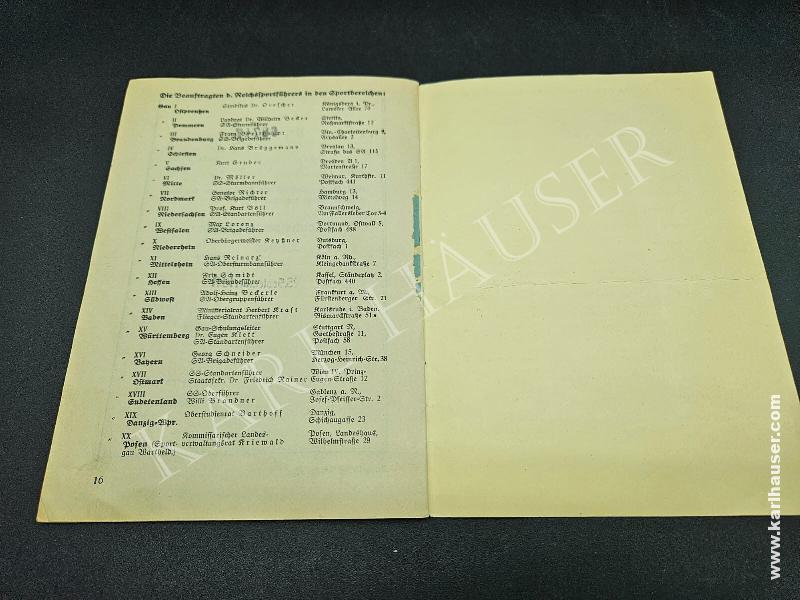 Die Beauftragten d. Reichssportführers in den Sportbereichen:
Gau I Syndikus Dr. Königsberg i. Pr.,
Ostpreußen Lawsker Allee
„ II Landrat Dr. Wilhelm Becker Stettin,
Pommern SA-Sturmführer Roßmarktstraße 12
„ III Bln.-Charlottenburg 9,
Brandenburg SS-Brigadeführer Arysallee 2
„ IV Dr. Hans Brüggemann Breslau 13,
Schlesien Straße der SA 115
„ V Kurt Gruber Dresden A 1,
Sachsen Marienstraße 17
„ VI Dr. Möller Weimar, Karlstr. 11
Mitte SS-Sturmbannführer Postfach 441
„ VII Senator Richter Hamburg 13,
Nordmark SA-Brigadeführer Mittelweg 14
„ VIII Prof. Kurt Böll Braunschweig,
Niedersachsen SA-Standartenführer Am Fallersleber Tor 3-4
„ IX Max Lorenz Dortmund, Ostwall 5,
Westfalen SA-Standartenführer Postfach
„ X Oberbürgermeister Keyßner Duisburg,
Niederrhein Postfach 1
„ XI Hans Reinarz Köln a. Rh.,
Mittelrhein SA-Obersturmbannführer Kleingedankstraße 7
„ XII Fritz Schmidt Kassel, Ständeplatz 2,
Hessen SA-Brigadeführer Postfach 440
„ XIII Adolf-Heinz Beckerle Frankfurt a. M.,
Südwest SA-Obergruppenführer Fürstenberger Str. 21
„ XIV Ministerialrat Herbert Kraft Karlsruhe in Baden,
Baden Flieger-Standartenführer Bismarckstraße
„ XV Gau-Schulungsleiter Stuttgart N,
Württemberg Dr. Eugen Klett Goethestraße 11,
SA-Standartenführer Postfach 58
„ XVI Georg Schneider München 13,
Bayern SA-Brigadeführer Herzog-Heinrich-Str. 38
„ XVII SS-Standartenführer Wien IV, Prinz-
Ostmark Staatssekr. Dr. Friedrich Rainer Eugen-Straße 12
„ XVIII SS-Oberführer Gablenz a. N.,
Sudetenland Willi Brandner Josef-Pfeiffer-Str. 2
„ XIX Oberstudienrat Barthoff Danzig,
Danzig-Wpr. Schichaugasse 23
„ XX Kommissarischer Landes- Posen, Landeshaus,
Posen (Sport- verwaltungsrat Kriewald Wilhelmstraße 29
gau Wartheld.)
16
KARL HÄUSER
www.karlhauser.com